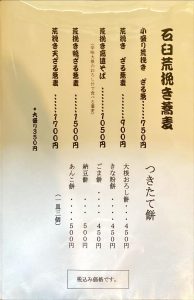 石臼荒挽き蕎麦
小盛り荒挽き ざる蕎麦‥‥750円
荒挽き ざる蕎麦‥‥‥900円
荒挽き高遠そば‥‥‥1050円
荒挽き鴨ざる蕎麦‥‥‥1500円
荒挽き天ざる蕎麦‥‥‥1700円
*大盛り350円
つきたて餅
大根おろし餅‥‥450円
きな粉餅‥‥‥450円
ごま餅‥‥‥450円
納豆餅‥‥‥500円
あんこ餅‥‥‥500円
(一皿三個)
税込み価格です。